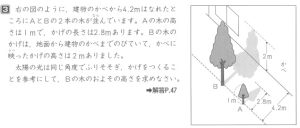 3 右の図のように，建物のかべから4.2mはなれたと
ころにAとBの2本の木が並んでいます。Aの木の高
さは1mで，かげの長さは2.8mあります。Bの木の
かげは，地面から建物のかべまでのびていて，かべに
映ったかげの高さは2mありました。
太陽の光は同じ角度でふりそそぎ，かげをつくるこ
とを参考にして，Bの木のおよその高さを求めなさい。
➡解答P.47
か
べ
2m
B
1m
A
2.8m
4.2m